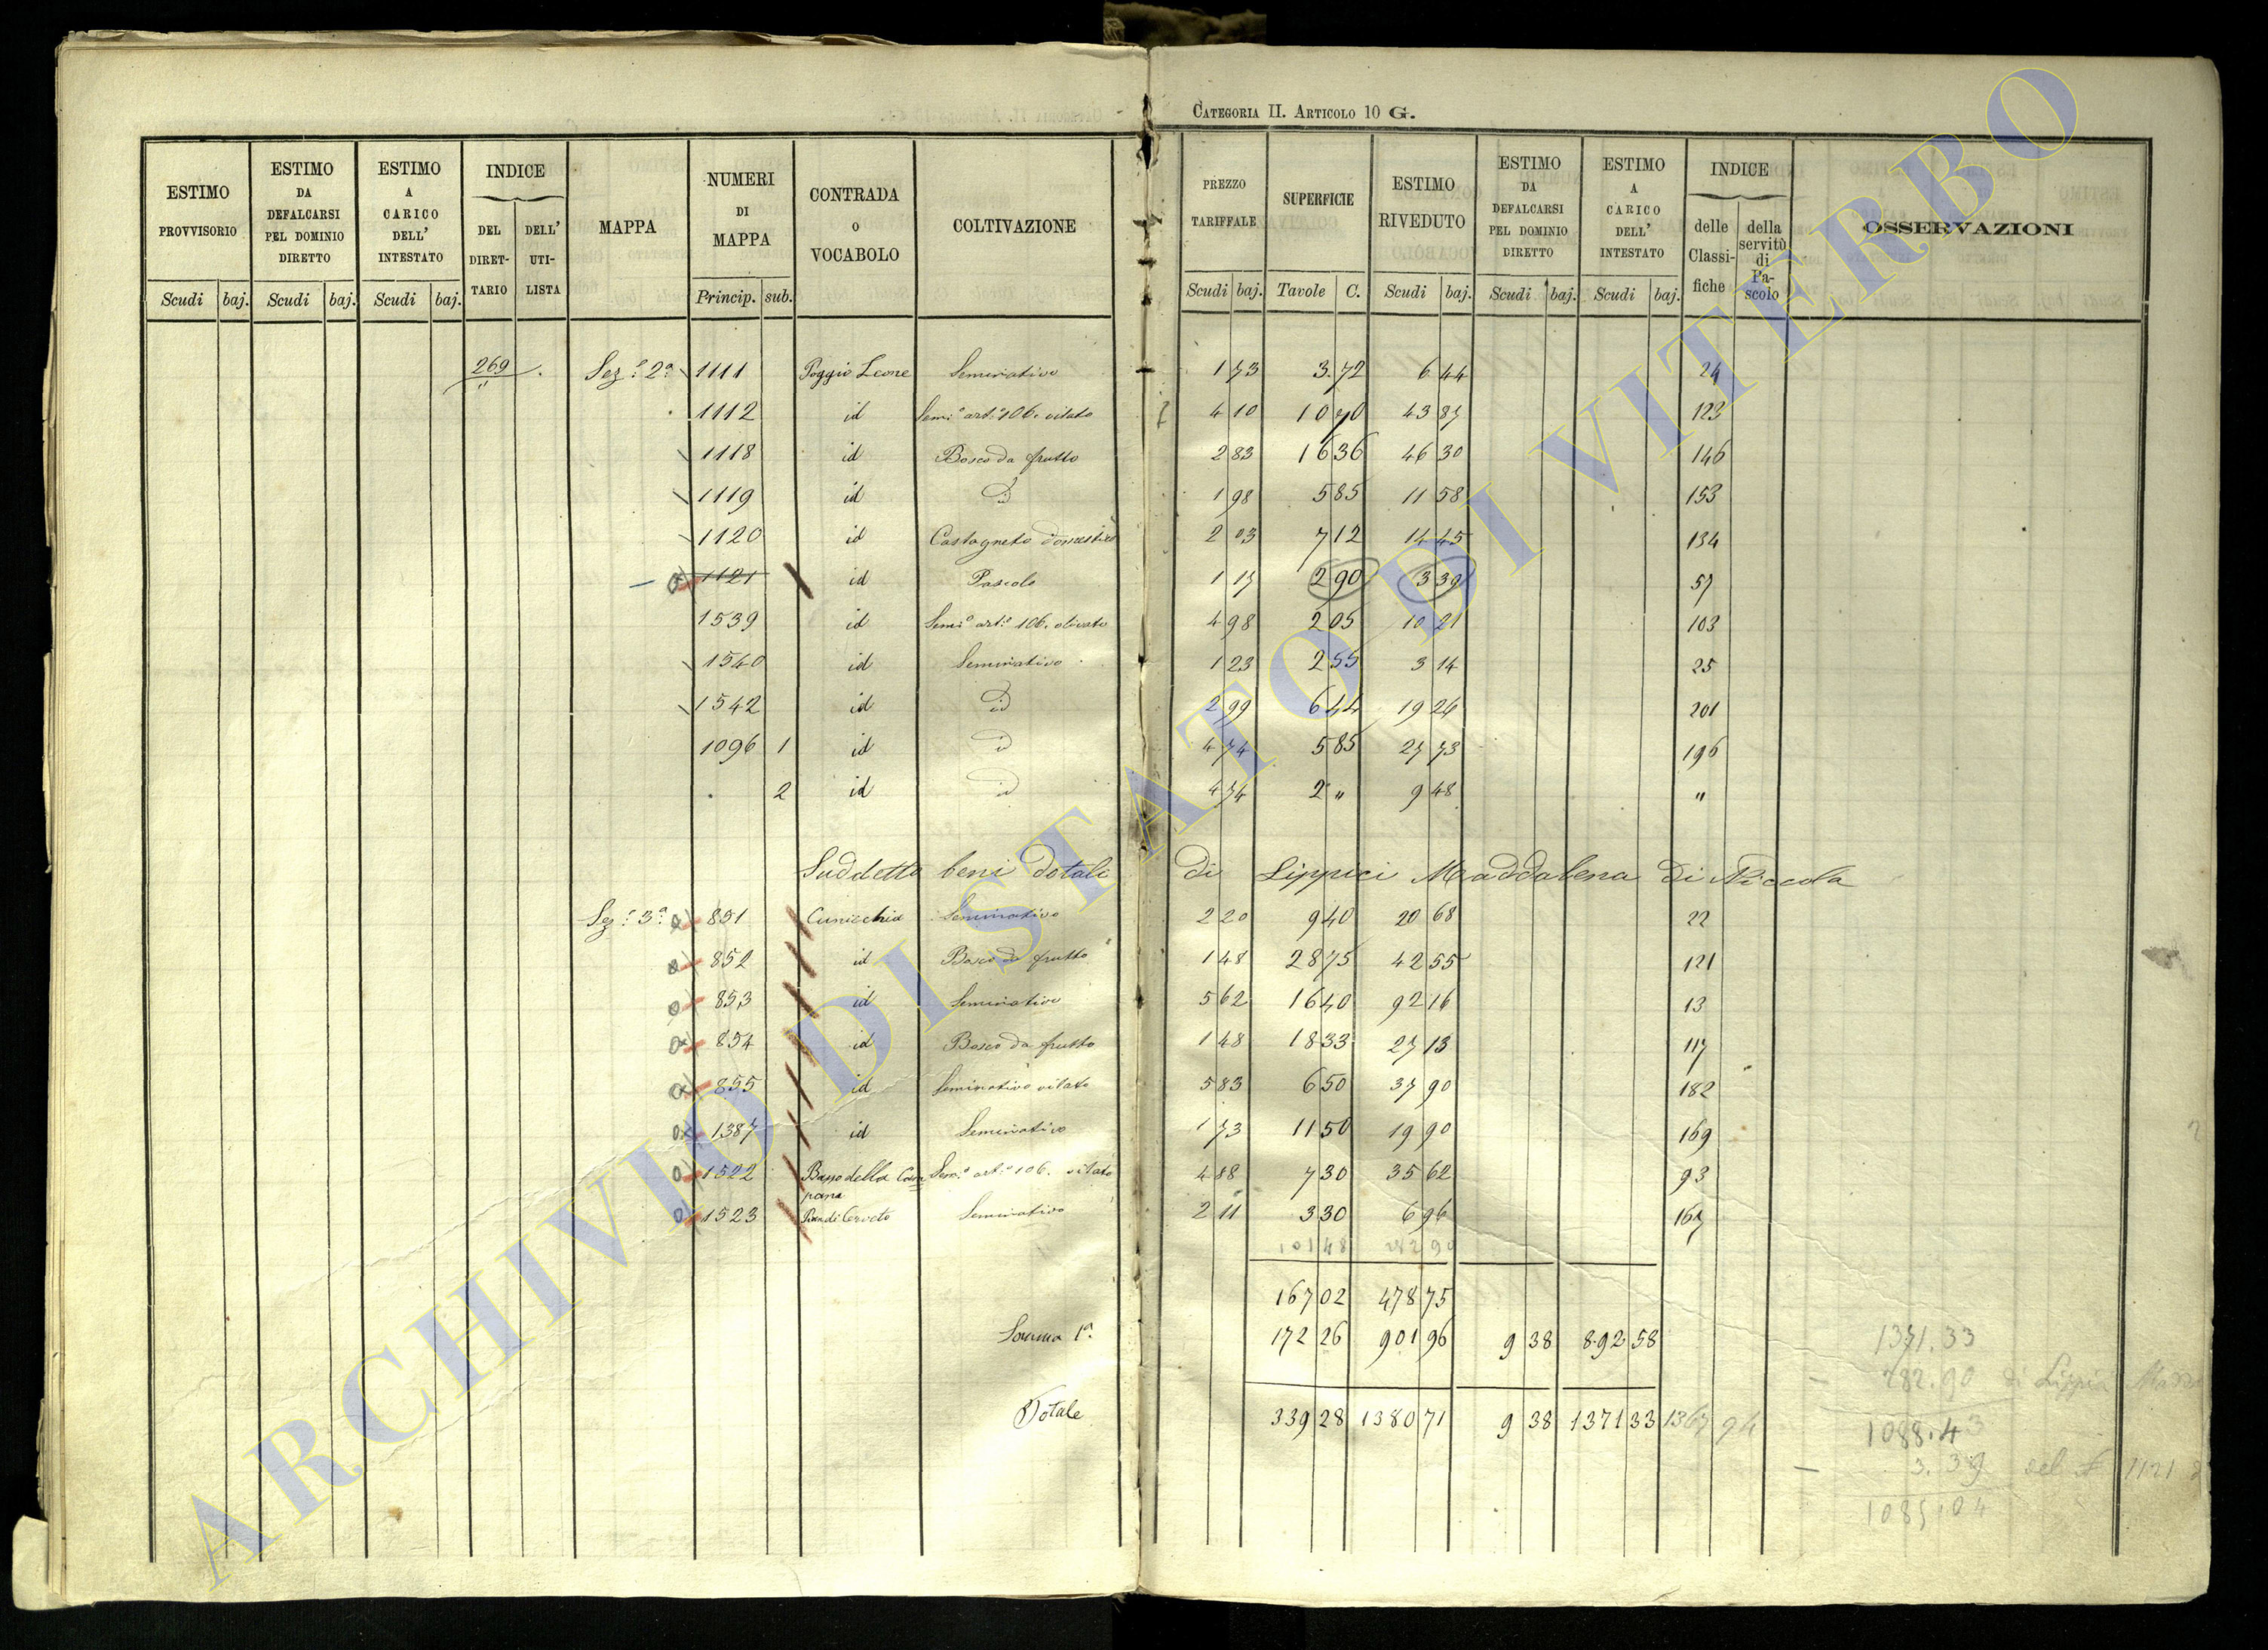 CATEGORIA II. ARTICOLO 10 G.
ESTIMO PROVVISORIO Scudi baj. ESTIMO DA DEFALCARSI PEL DOMINIO DIRETTO Scudi baj. ESTIMO A CARICO DELL' INTESTATO Scudi baj. INDICE DEL DIRET-TARIO DELL' UTI-LISTA MAPPA NUMERI DI MAPPA Princip. sub. CONTRADA O VOCABOLO COLTIVAZIONE PREZZO TARIFFALE Scudi baj. SUPERFICIE Tavole C. ESTIMO RIVEDUTO Scudi baj. ESTIMO DA DEFALCARSI PEL DOMINIO DIRETTO Scudi baj. ESTIMO A CARICO DELL' INTESTATO Scudi baj. INDICE delle Classi-fiche della servitù di Pa-scolo OSSERVAZIONI
269 Sez.e 2a 1111 Poggio Leone Seminativo 1 73 3 72 6 44 24
1112 id Semi.o art.o 106. vitato 4 10 10 70 43 87 123
1118 id Bosco da frutto 2 83 16 36 46 30 146
1119 id id 1 98 5 85 11 58 153
1120 id Castagneto domestico 2 03 7 12 14 45 134
1121 id Pascolo 1 17 2 90 3 39 57
1539 id Semi.o art.o 106. olivato 4 98 2 05 10 21 103
1540 id Seminativo 1 23 2 55 3 14 25
1542 id id 2 99 6 44 19 26 201
1096 1 id id 4 74 5 85 27 73 196
2 id id 4 74 2 " 9 48 "
Suddetto beni dotali di Lippici Maddalena di Niccola
Sez.e 3a 851 Cunicchia Seminativo 2 20 9 40 20 68 22
852 id Bosco da frutto 1 48 28 75 42 55 121
853 id Seminativo 5 62 16 40 92 16 13
854 id Bosco da frutto 1 48 18 33 27 13 117
855 id Seminativo vitato 5 83 6 50 37 90 182
1387 id Seminativo 1 73 11 50 19 90 169
1522 Basso della Cam=pana Sem.o art.o 106. vitato 4 88 7 30 35 62 93
1523 Pian di Cerreto Seminativo 2 11 3 30 6 96 167
101 48 282 90
167 02 478 75
Somma 1a. 172 26 901 96 9 38 892 58
1371.33
282.90 di Lippici
Totale 339 28 1380 71 9 38 1371 33 1367 94
1088.43
3.39 del N 1121
1085.04
ARCHIVIO DI STATO DI VITERBO